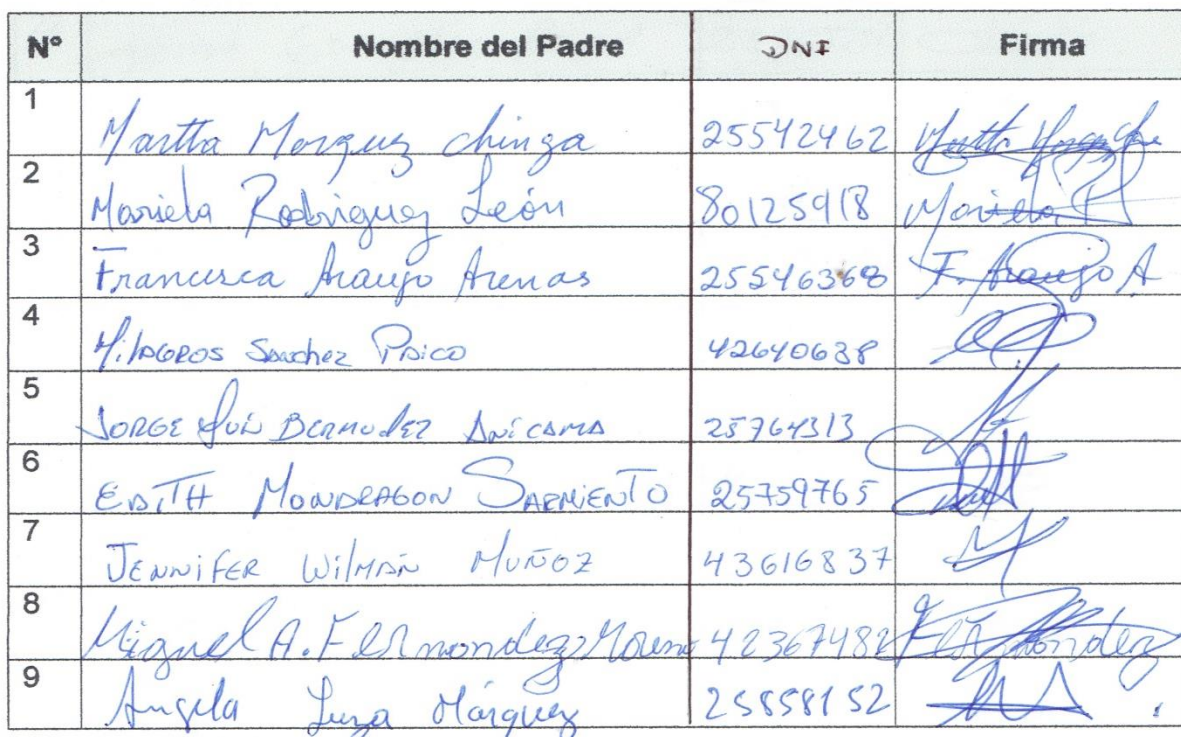 Nº Nombre del Padre DNI Firma
1 Martta Marquez Chinga 25542462
2 Mariela Rodriguez León 80125918 Mariela R
3 Francisca Araujo Arenas 25546368 F. Araujo A
4 Milagros Sanchez Paico 42640638
5 JORGE Luis BERMUDEZ ANICAMA 25764313
6 EDITH MONDRAGON SARMIENTO 25759765
7 JENNIFER WilMAN MUÑOZ 43616837
8 Miguel A. Moreno 42367482
9 Angela Luza Márquez 25558152